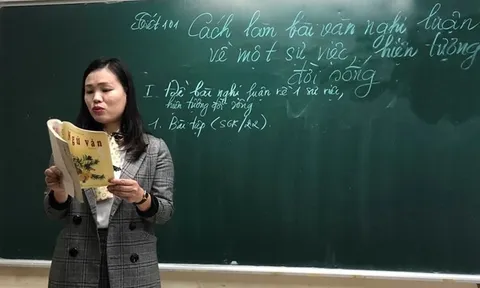 Tiết 101 Cách làm bài văn nghị luận
về một sự việc, hiện tượng
đời sống
I. Đề bài nghị luận về 1 sự việc,
hiện tượng đời sống
1. Bài tập (SGK/22).
Ngữ văn